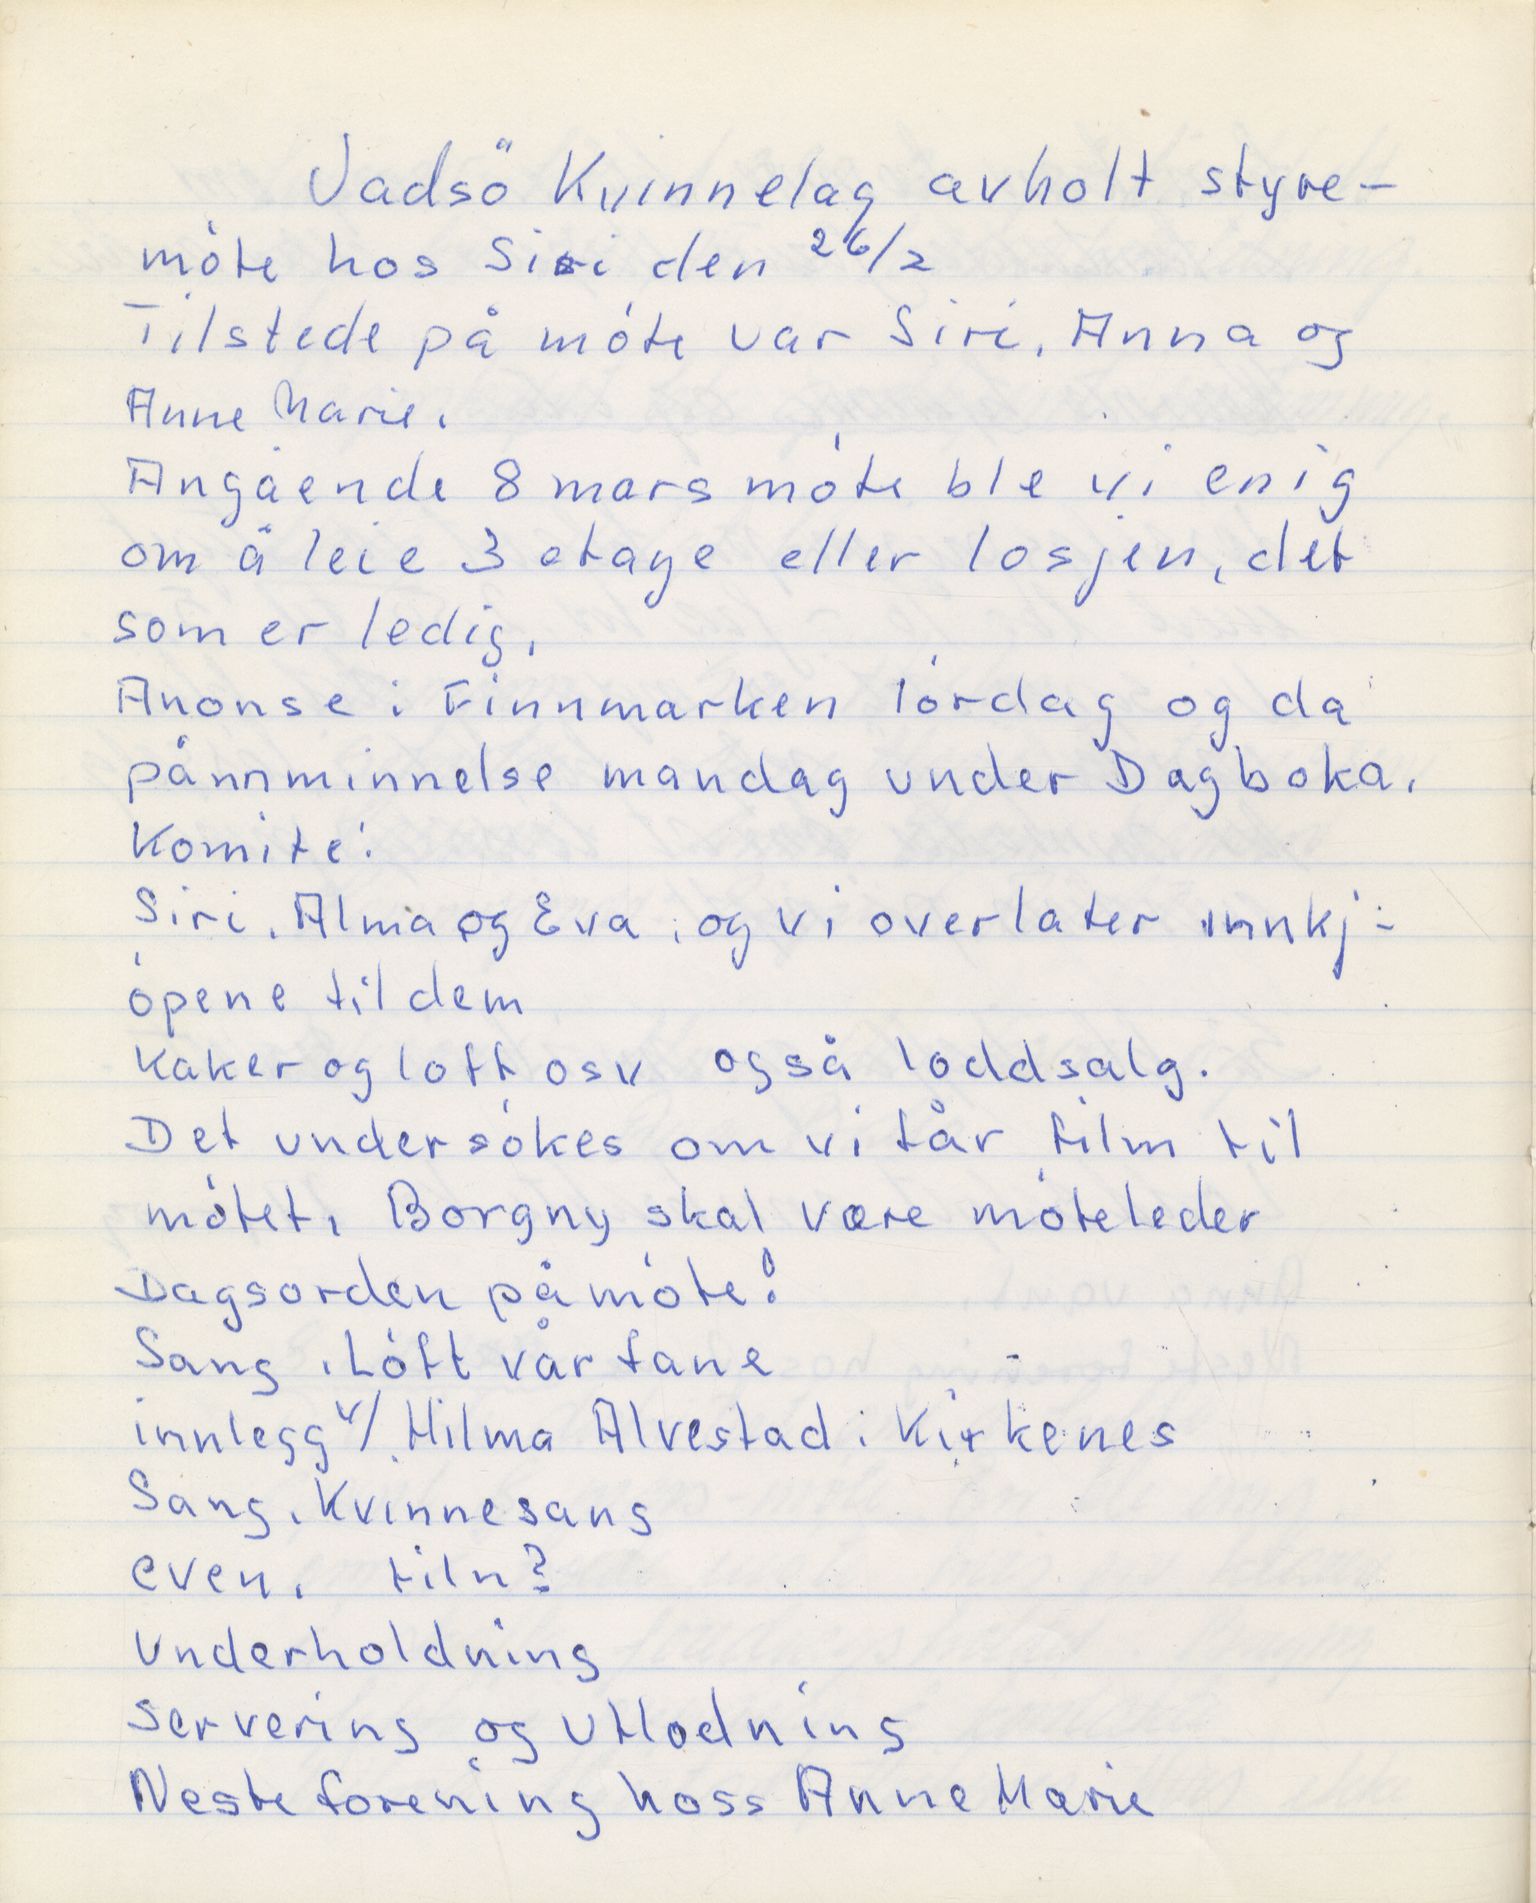 Vadsö Kvinnelag avholt styre-
móte hos Siri den 26/2
Tilstede på móte var Siri, Anna og
Anne Marie.
Angående 8 mars móte ble vi enig
om å leie 3 etage eller losjen, det
som er ledig,
Anonse i Finnmarken lórdag og da
pånnminnelse mandag under Dagboka.
Komite:
Siri, Alma og Eva, og vi overlater innkj-
ópene til dem
Kaker og loff osv også loddsalg.
Det undersókes om vi får film til
mótet, Borgny skal være móteleder
Dagsorden på móte:
Sang, Lóft vår fane
innlegg v/ Hilma Alvestad i Kirkenes
Sang, Kvinnesang
even. film?
Underholdning
Servering og utlodning
Neste forening hoss Anne Marie